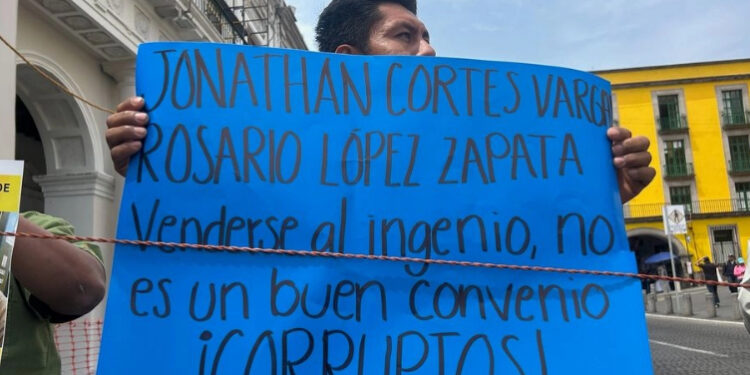 JONATHAN CORTES VARGA
ROSARIO LÓPEZ ZAPATA
Venderse al ingenio, no
es un buen convenio
¡CORRUPTOS!
DE